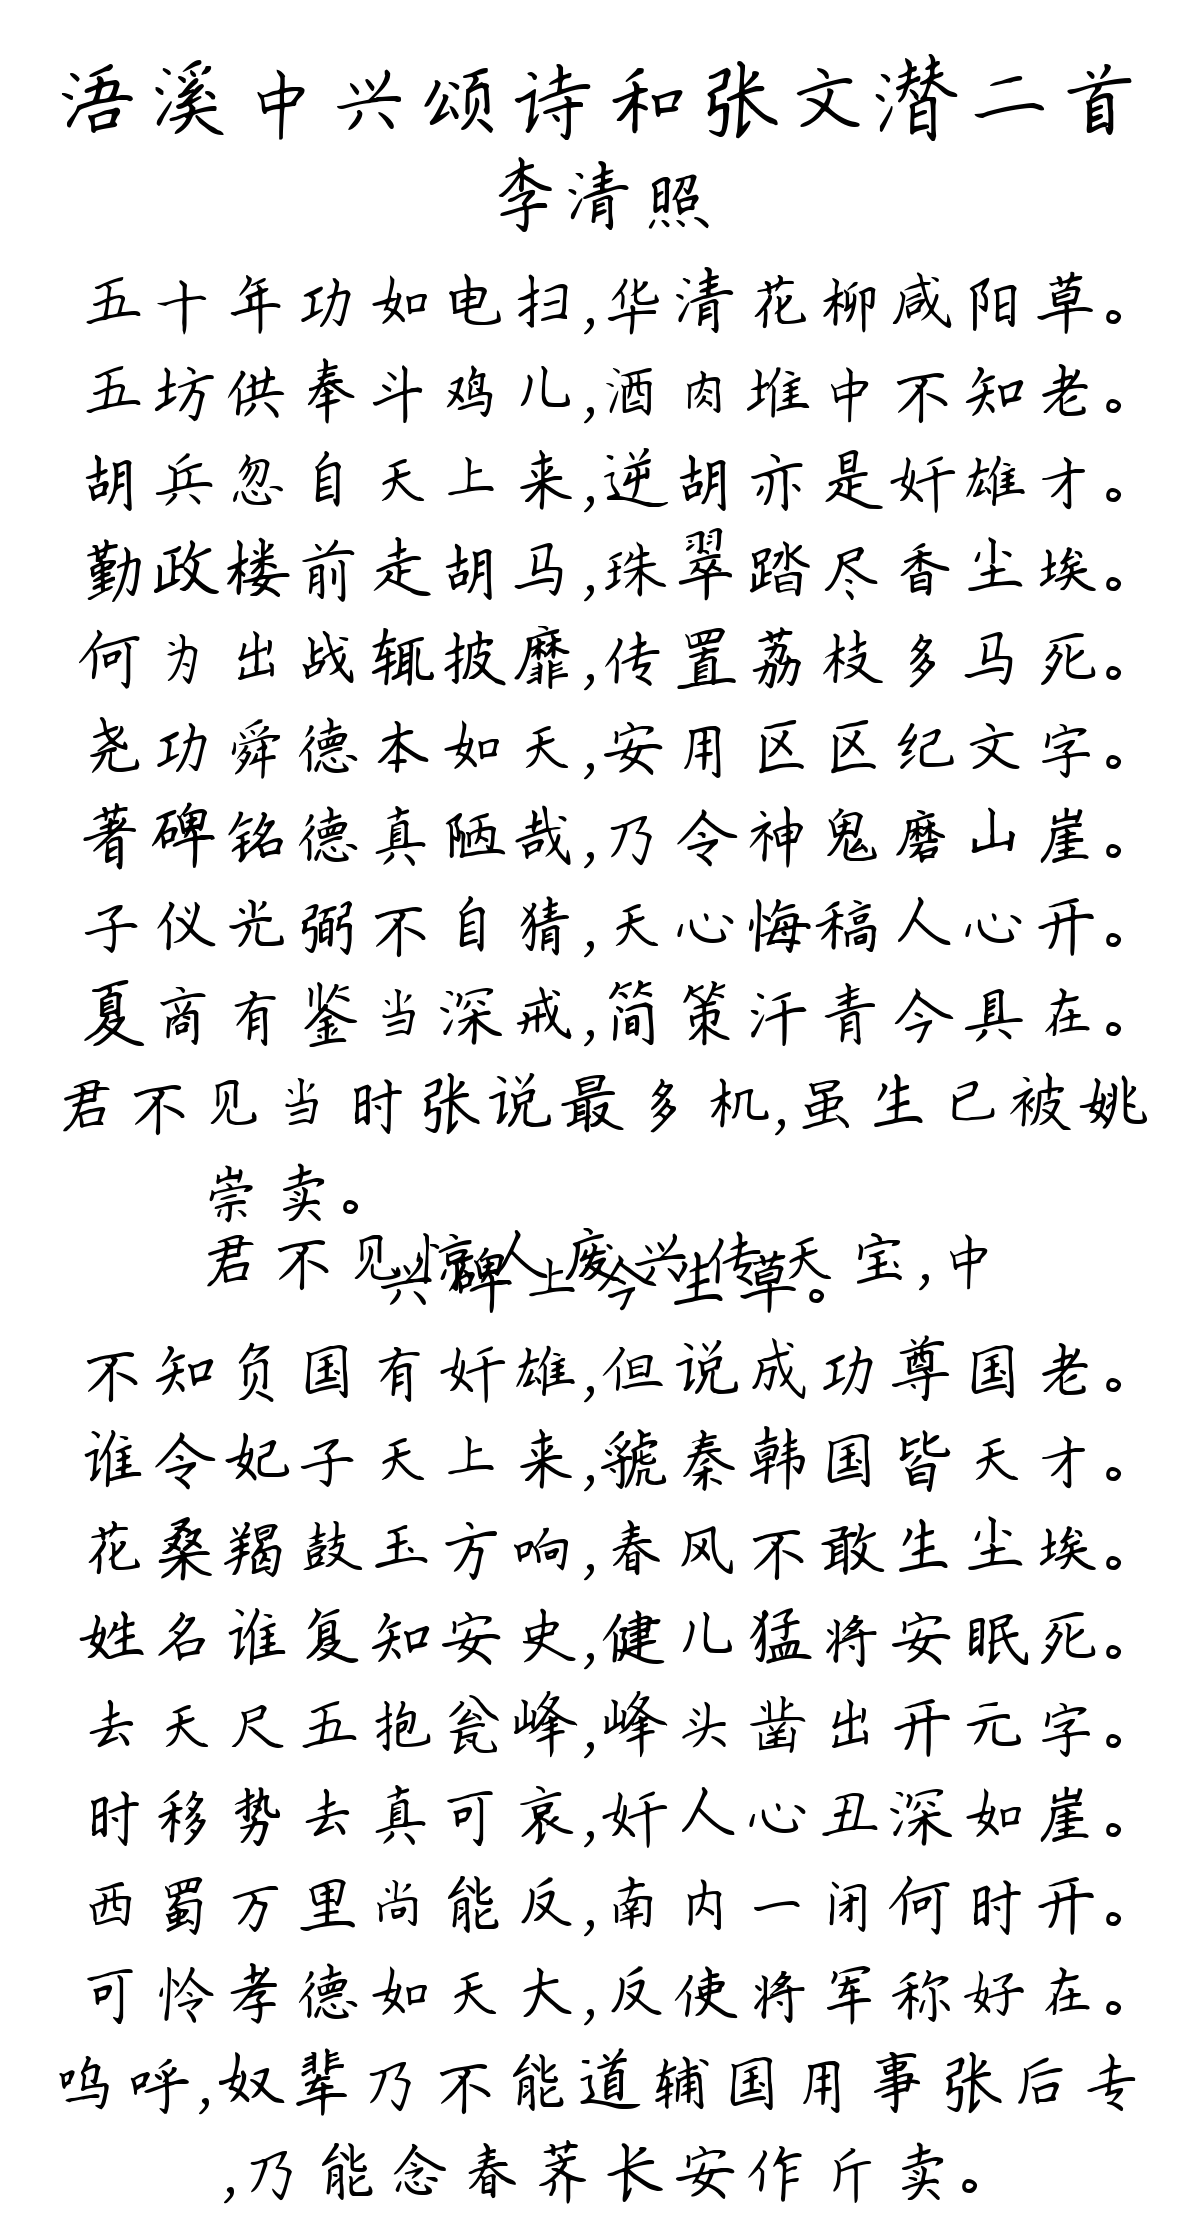 浯溪中兴颂诗和张文潜二首
李清照
五十年功如电扫,华清花柳咸阳草。
五坊供奉斗鸡儿,酒肉堆中不知老。
胡兵忽自天上来,逆胡亦是奸雄才。
勤政楼前走胡马,珠翠踏尽香尘埃。
何为出战辄披靡,传置荔枝多马死。
尧功舜德本如天,安用区区纪文字。
著碑铭德真陋哉,乃令神鬼磨山崖。
子仪光弼不自猜,天心悔稿人心开。
夏商有鉴当深戒,简策汗青今具在。
君不见当时张说最多机,虽生已被姚
崇卖。
君不见惊人废兴传天宝,中
兴碑上今生草。
不知负国有奸雄,但说成功尊国老。
谁令妃子天上来,虢秦韩国皆天才。
花桑羯鼓玉方响,春风不敢生尘埃。
姓名谁复知安史,健儿猛将安眠死。
去天尺五抱瓮峰,峰头凿出开元字。
时移势去真可哀,奸人心丑深如崖。
西蜀万里尚能反,南内一闭何时开。
可怜孝德如天大,反使将军称好在。
呜呼,奴辈乃不能道辅国用事张后专
,乃能念春荠长安作斤卖。